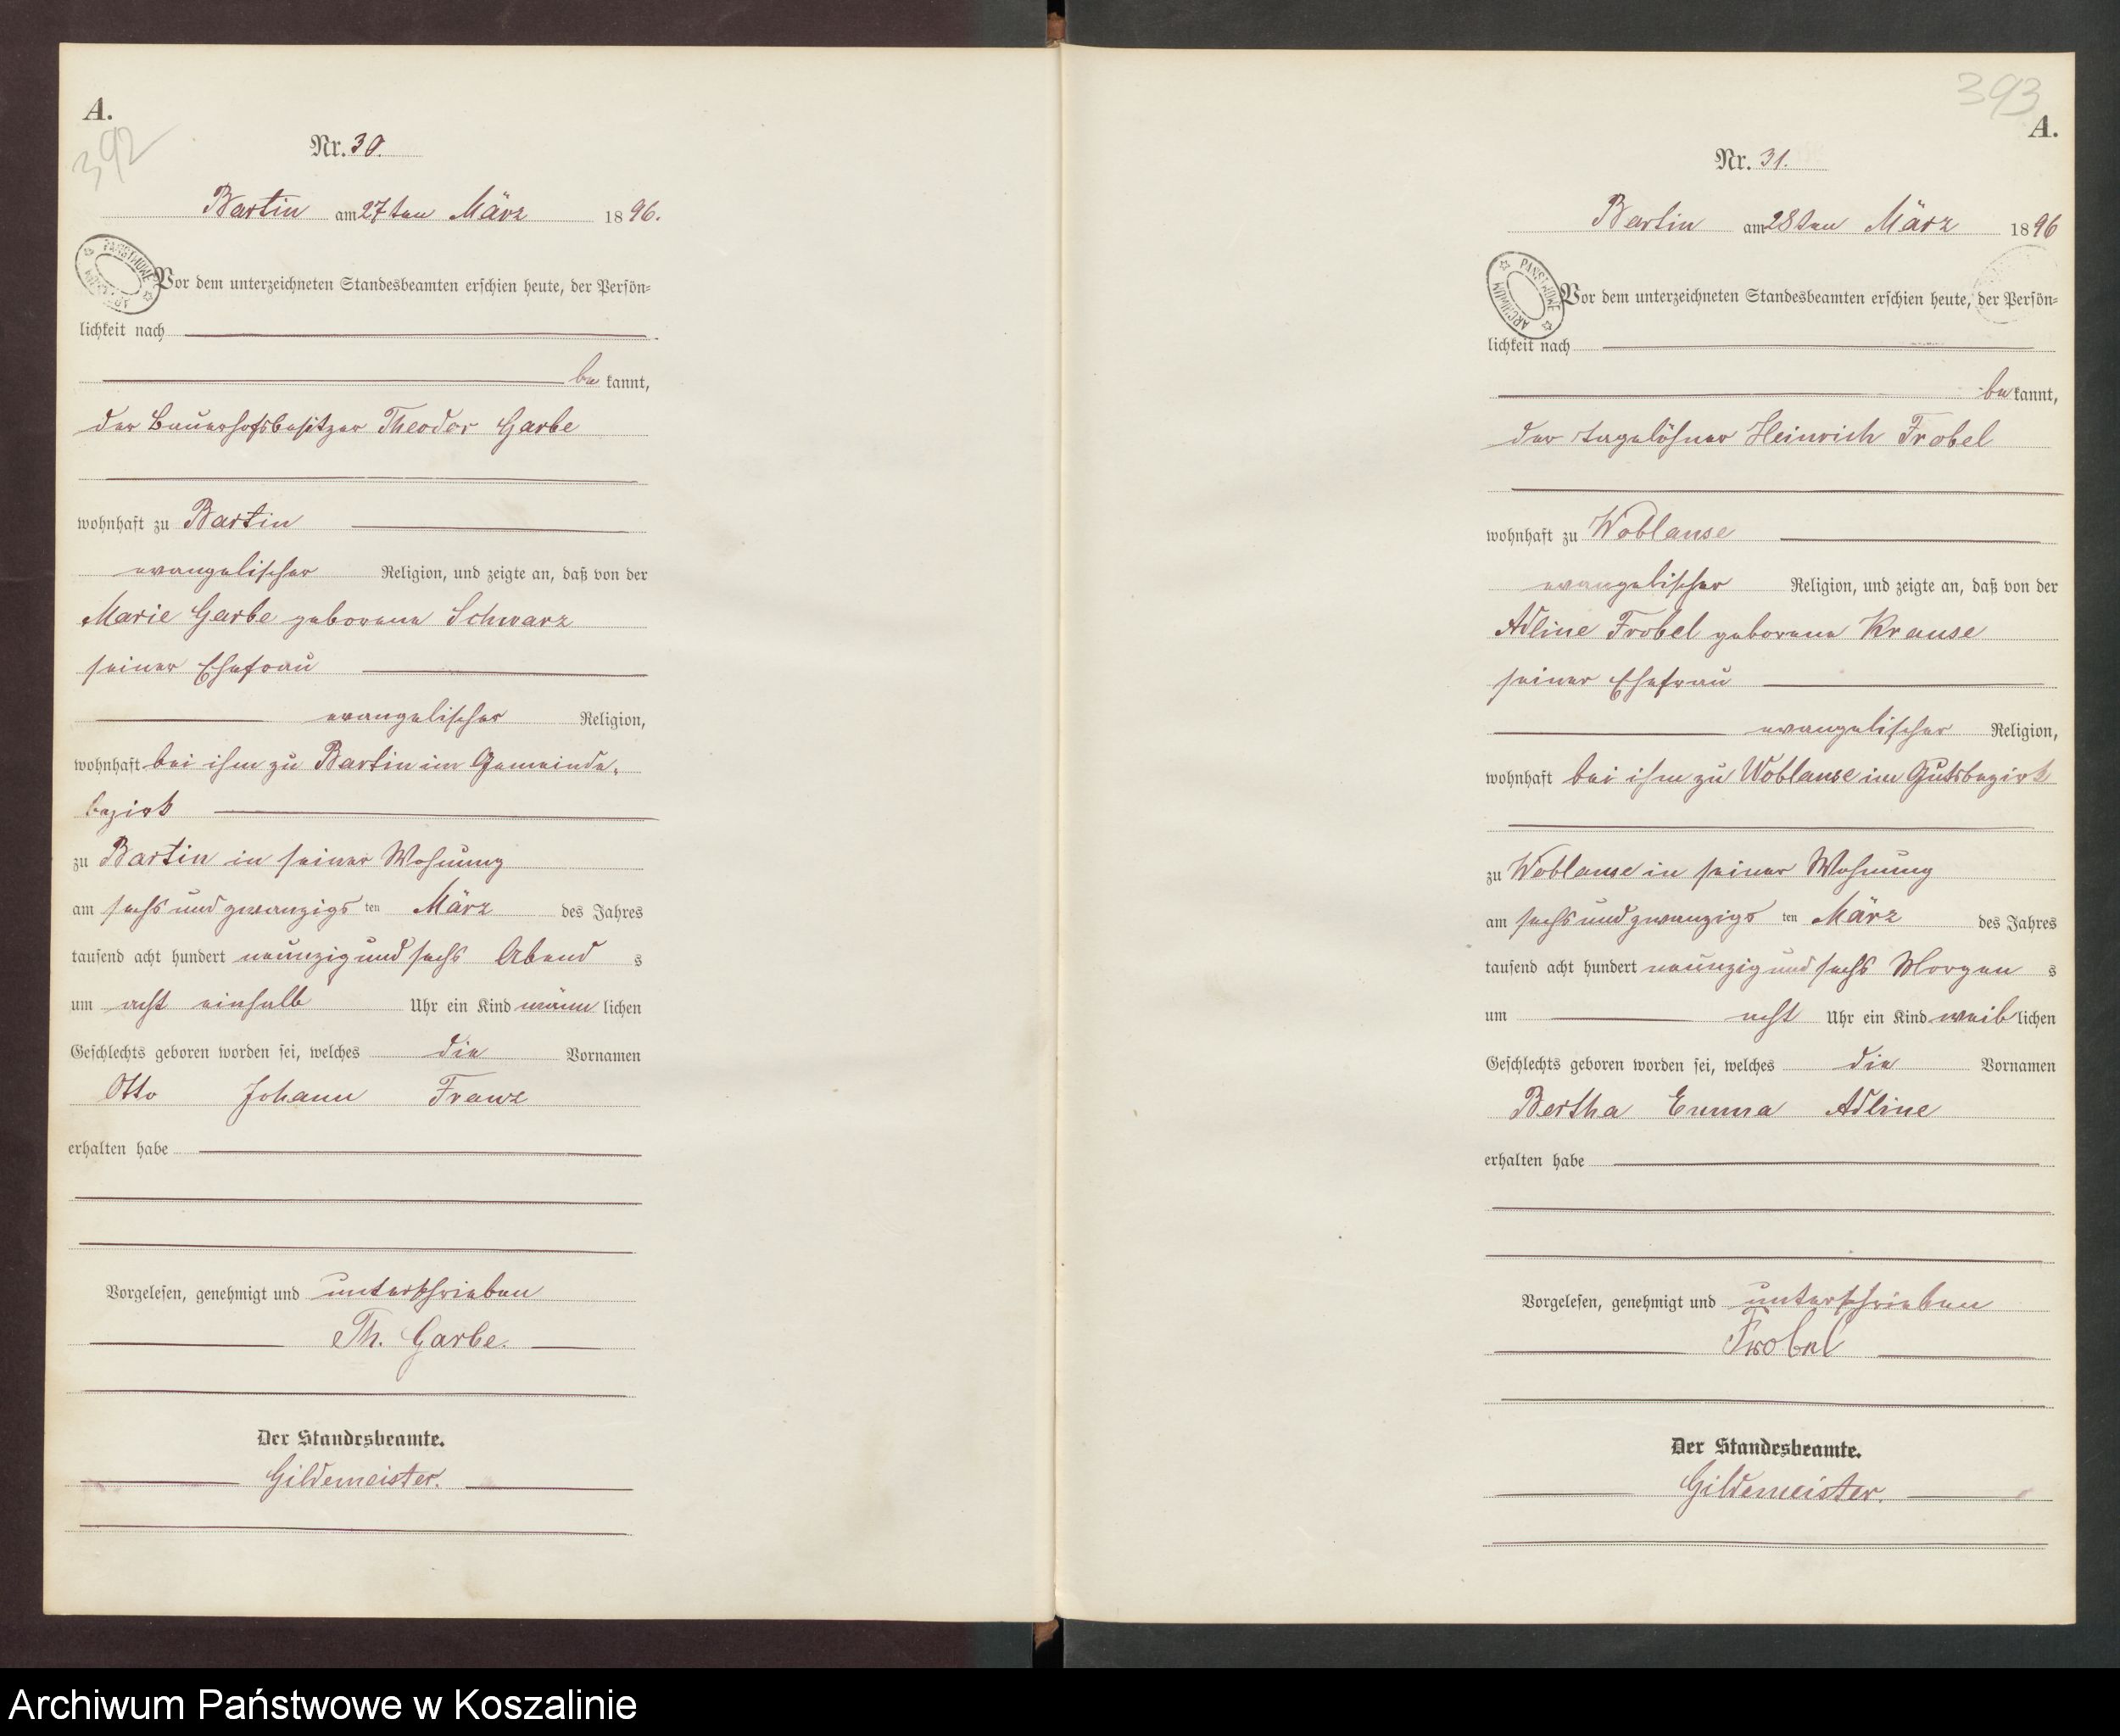 A.
392
Nr. 30.
Bartin am 27ten März 1896.
PAŃSTWOWE ARCHIWUM
Vor dem unterzeichneten Standesbeamten erschien heute, der Persön=
lichkeit nach
bekannt,
der Bauerhofsbesitzer Theodor Garbe
wohnhaft zu Bartin
evangelischer Religion, und zeigte an, daß von der
Marie Garbe geborene Schwarz
seiner Ehefrau
evangelischer Religion,
wohnhaft bei ihm zu Bartin im Gemeinde-
bezirk
zu Bartin in seiner Wohnung
am sechsundzwanzigsten März des Jahres
tausend acht hundert neunzig und sechs Abends
um acht einhalb Uhr ein Kind männlichen
Geschlechts geboren worden sei, welches die Vornamen
Otto Johann Franz
erhalten habe
Vorgelesen, genehmigt und unterschrieben
Th. Garbe.
Der Standesbeamte.
Gildemeister.
393
A.
Nr. 31.
Bartin am 28ten März 1896
PAŃSTWOWE ARCHIWUM
Vor dem unterzeichneten Standesbeamten erschien heute, der Persön=
lichkeit nach
bekannt,
der Tagelöhner Heinrich Frobel
wohnhaft zu Woblanse
evangelischer Religion, und zeigte an, daß von der
Adline Frobel geborene Krause
seiner Ehefrau
evangelischer Religion,
wohnhaft bei ihm zu Woblanse im Gutsbezirk
zu Woblanse in seiner Wohnung
am sechsundzwanzigsten März des Jahres
tausend acht hundert neunzig und sechs Morgens
um acht Uhr ein Kind weiblichen
Geschlechts geboren worden sei, welches die Vornamen
Bertha Emma Adline
erhalten habe
Vorgelesen, genehmigt und unterschrieben
Frobel
Der Standesbeamte.
Gildemeister.
Archiwum Państwowe w Koszalinie